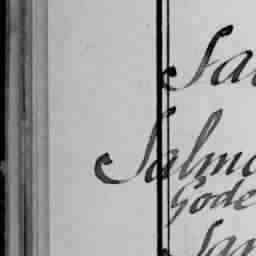 Sa
Salmo
Gode
San